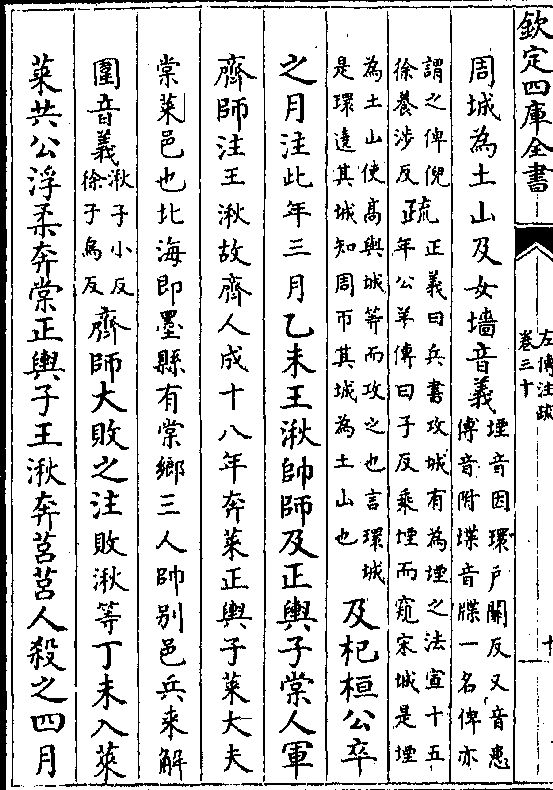 欽定四庫全書
左傳注疏
卷三十
十
周城為土山及女墻音義
堙音因環户關反又音患
傅音附堞音牒一名俾亦
謂之俾倪
徐養涉反
疏
正義曰兵書攻城有為堙之法宣十五
年公羊傳曰子反乘堙而窺宋城是堙
為土山使高與城等而攻之也言環城
是環遶其城知周帀其城為土山也
及杞桓公卒
之月注此年三月乙未王湫帥師及正輿子棠人軍
齊師注王湫故齊人成十八年奔萊正輿子萊大夫
棠萊邑也北海即墨縣有棠鄉三人帥别邑兵來解
圍音義
湫子小反
徐子烏反
齊師大敗之注敗湫等丁未入萊
萊共公浮柔奔棠正輿子王湫奔莒莒人殺之四月